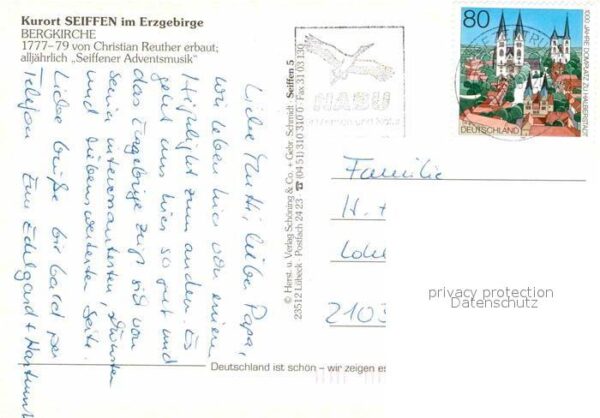 Kurort SEIFFEN im Erzgebirge
BERGKIRCHE
1777–79 von Christian Reuther erbaut;
alljährlich „Seiffener Adventsmusik"
Liebe Mutti, lieber Papa,
wir leben hier von einem
Highlight zum anderen. Es
gefällt uns hier so gut und
das Erzgebirge zeigt sich von
seiner interessantesten, schönsten
und liebenswertesten Seite.
Liebe Grüße bis bald per
Telefon Eure Edelgard + Hartmut
© Herst. u. Verlag Schöning & Co. + Gebr. Schmidt Seiffen 5
23512 Lübeck · Postfach 24 23 · ☎ (04 51) 310 310 0 · Fax 31 03 130
NABU
80
DEUTSCHLAND
1000 JAHRE DOMPLATZ ZU HALBERSTADT
Familie
H. +
2103
privacy protection
Datenschutz
Deutschland ist schön – wir zeigen es